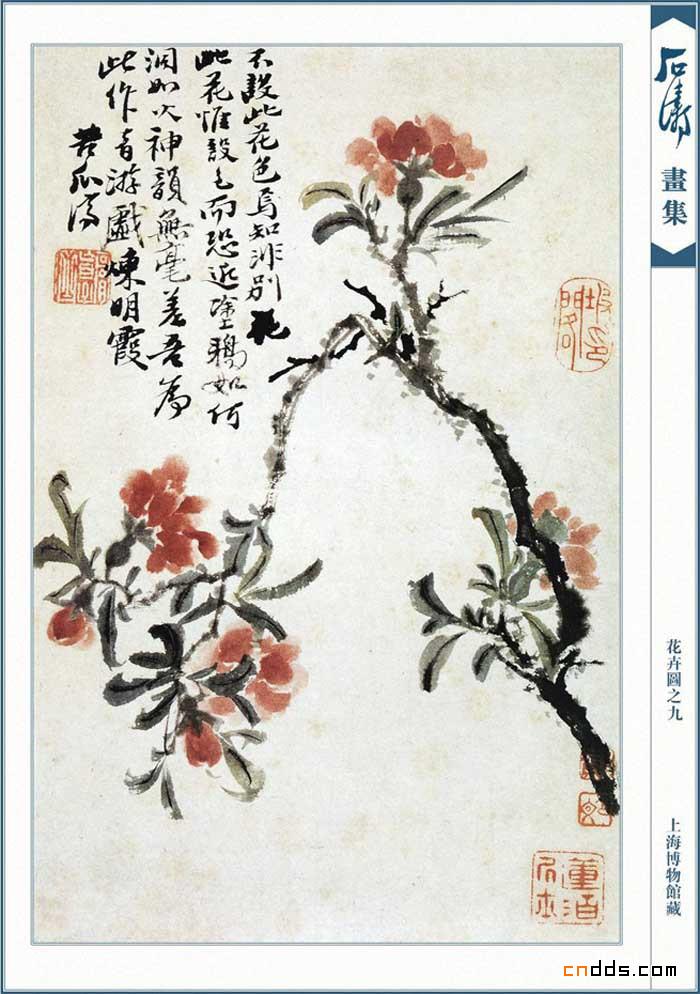 石濤
畫集
不設此花色焉知非別花
此花惟設色而恐近塗鴉如何
洞如火神韻無毫差吾為
此作游戲煉明霞
苦瓜濟
花卉圖之九
上海博物館藏
cndds.com